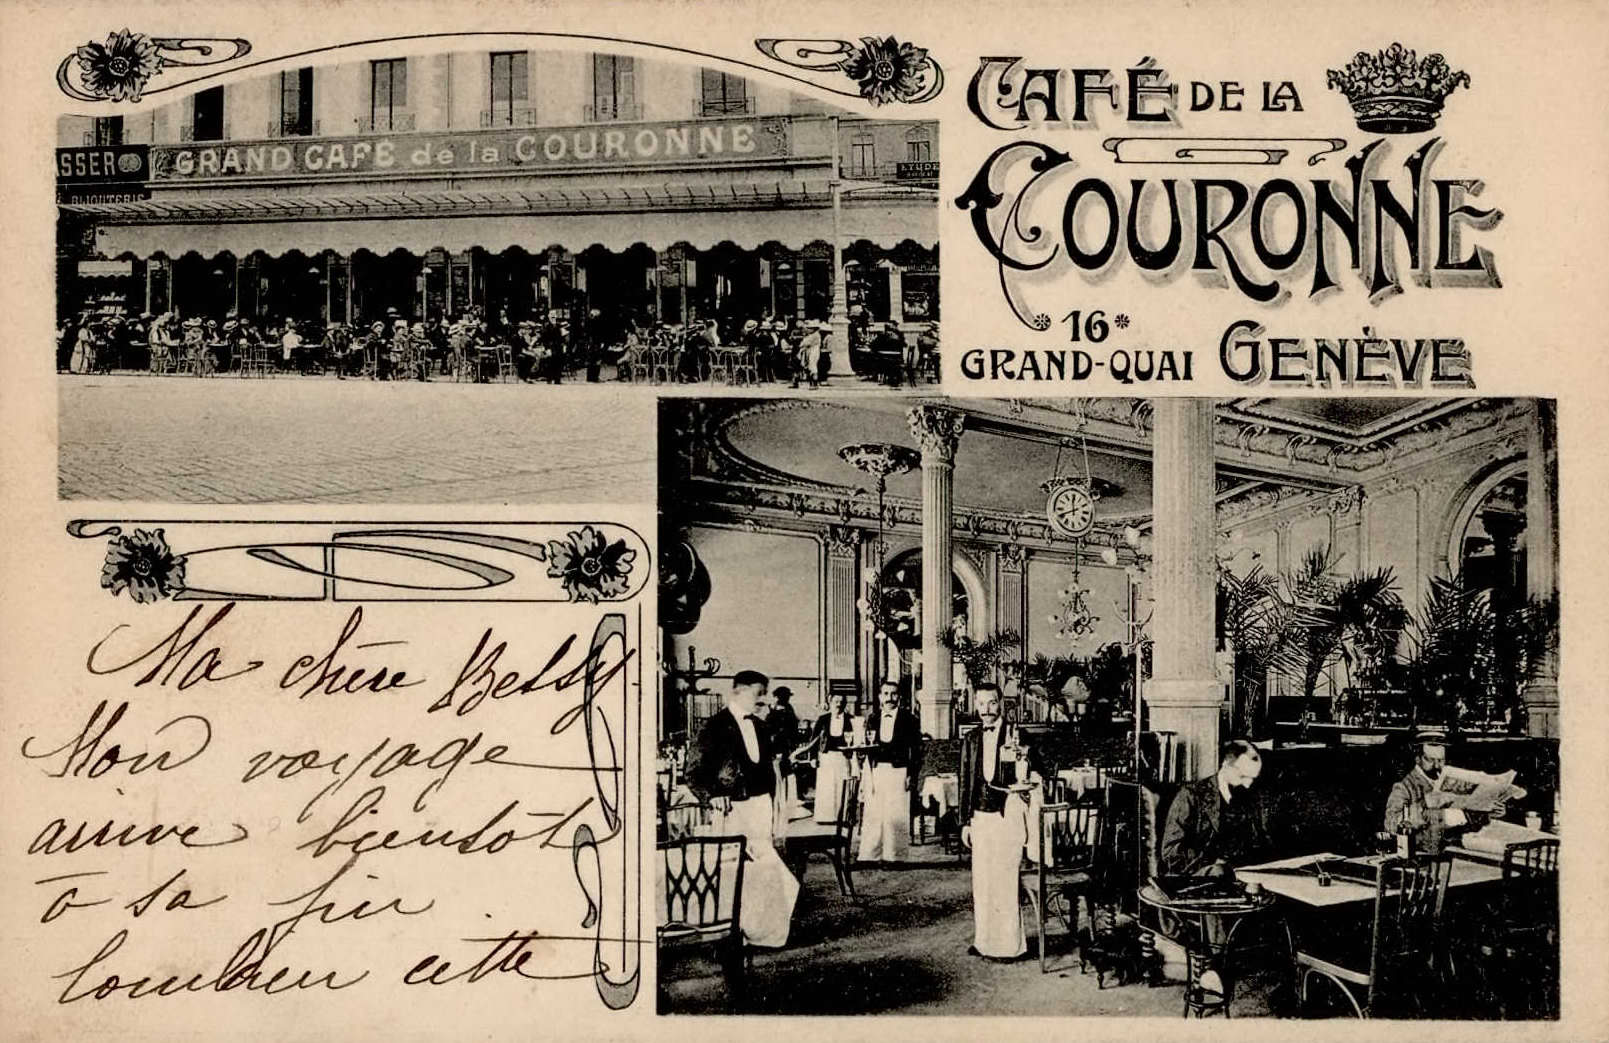 CAFÉ DE LA
COURONNE
16
GRAND-QUAI GENÈVE
GRAND CAFÉ de la COURONNE
SSER
BIJOUTERIE
Ma chère Betsy
Mon voyage
arrive bientôt
à sa fin
combien cette